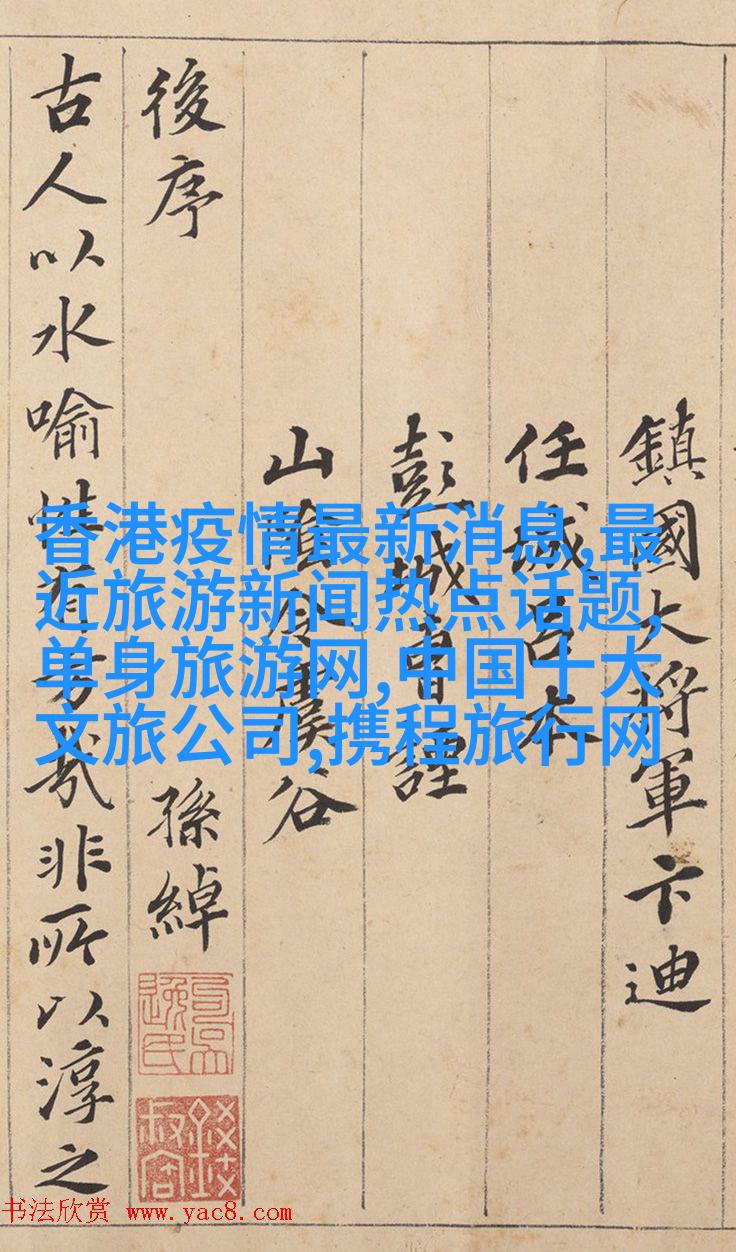 鎮國大将軍卞迪
任城呂本
彭城曹諲
山陰令虞谷
後序 孫綽
古人以水喻性有旨哉非所以淳之
香港疫情最新消息,最
近旅游新闻热点话题,
单身旅游网,中国十大
文旅公司,携程旅行网
书法欣赏 www.yac8.com